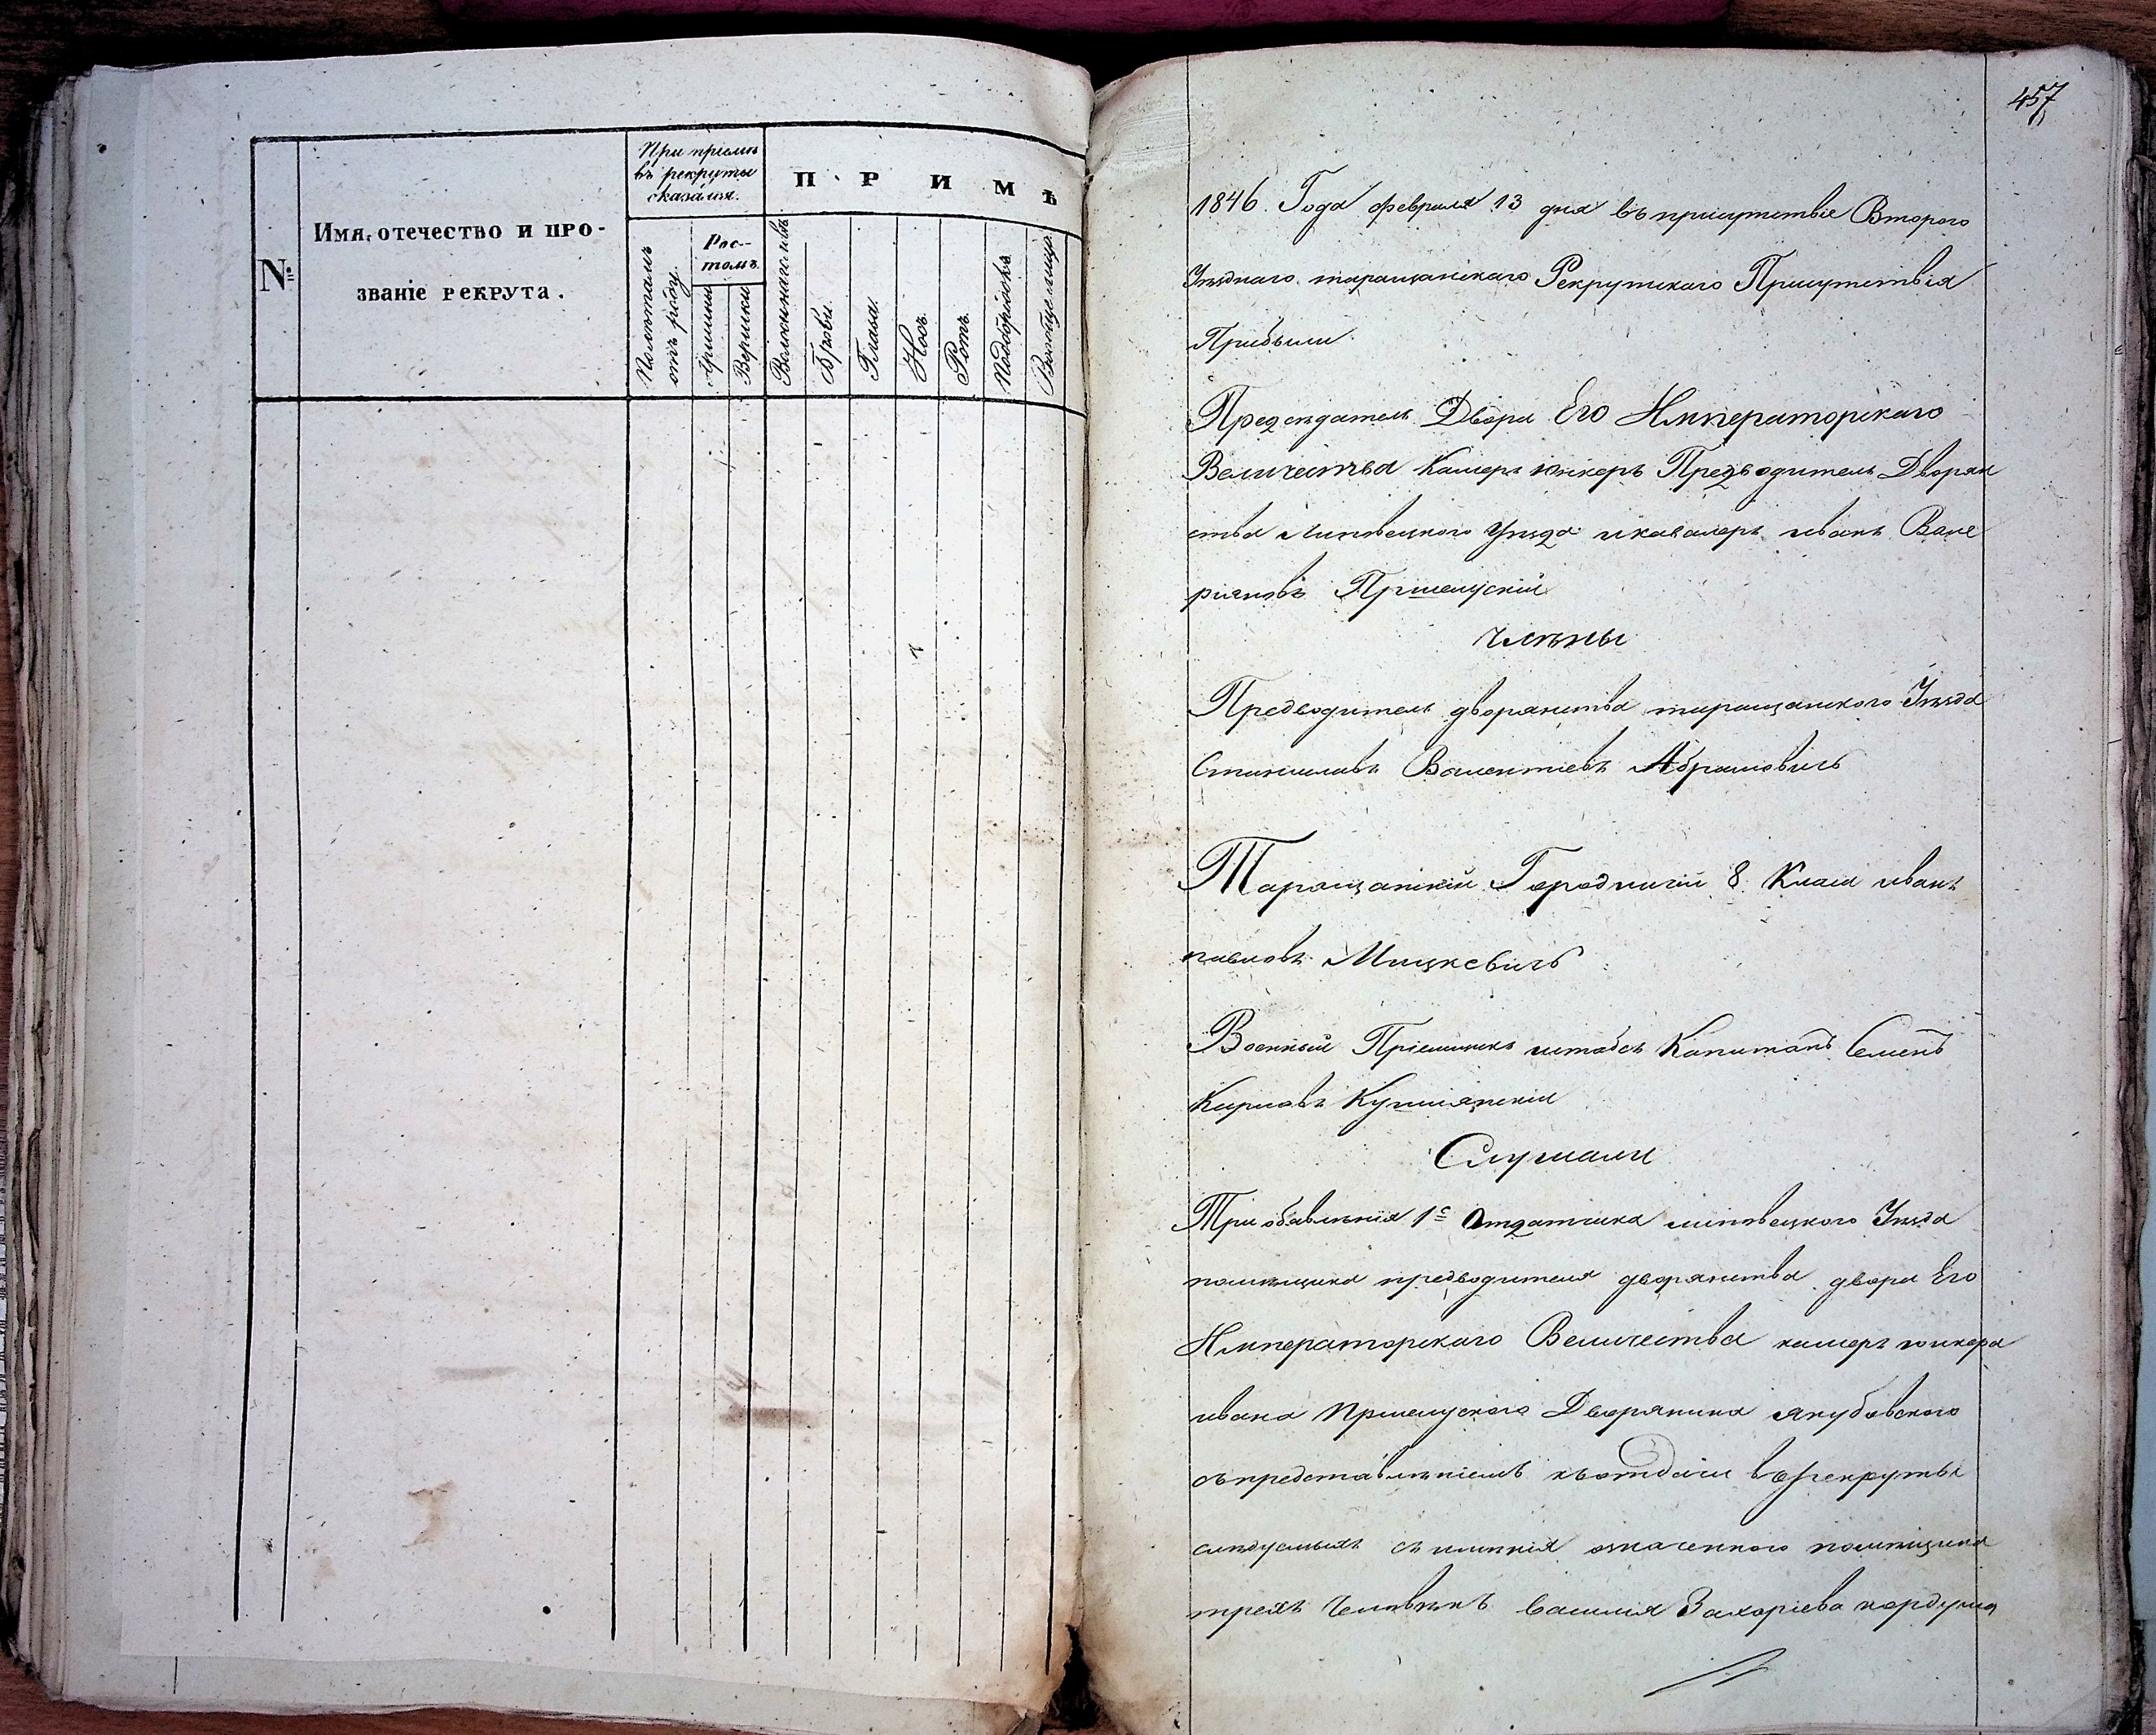 №
Имя, отечество и про-
званіе рекрута.
При пріемѣ
въ рекруты
оказался.
Полѣтамъ
отъ роду.
Рос-
томъ.
Аршины
Вершки
П Р И М Ѣ
Брови.
Глаза.
Носъ.
Ротъ.
Подбородокъ
457
1846. Года февраля 13 дня въ присутствіе Втораго
Уѣзднаго таращанскаго Рекрутскаго Присутствія
Прибыли
Предсѣдатель Двора Его Императорскаго
Величества Камеръ юнкеръ Предводитель Дворян
ства Липовецкого Уѣзда и кавалеръ иванъ Вале
ріяновъ Пршемускій
Члѣны
Предводитель дворянства таращанского Уѣзда
Станиславъ Валентіевъ Абрамовичь
Таращанскій Городничій 8. Класа иванъ
павловъ Мицкевичь
Военный Пріемщикъ штабсъ Капитанъ Семенъ
Слушали
Три обявленія 1е Отдатчика липовецкого Уѣзда
помѣщика предводителя дворянства двора Его
Императорскаго Величества камеръ юнкера
ивана Пршемуского Дворянина якубовского
съ представлѣніемъ къ отдачи в рекруты
слѣдуемыхъ съ имѣнія означенного помѣщика
трехъ Человѣкъ василія Захаріева